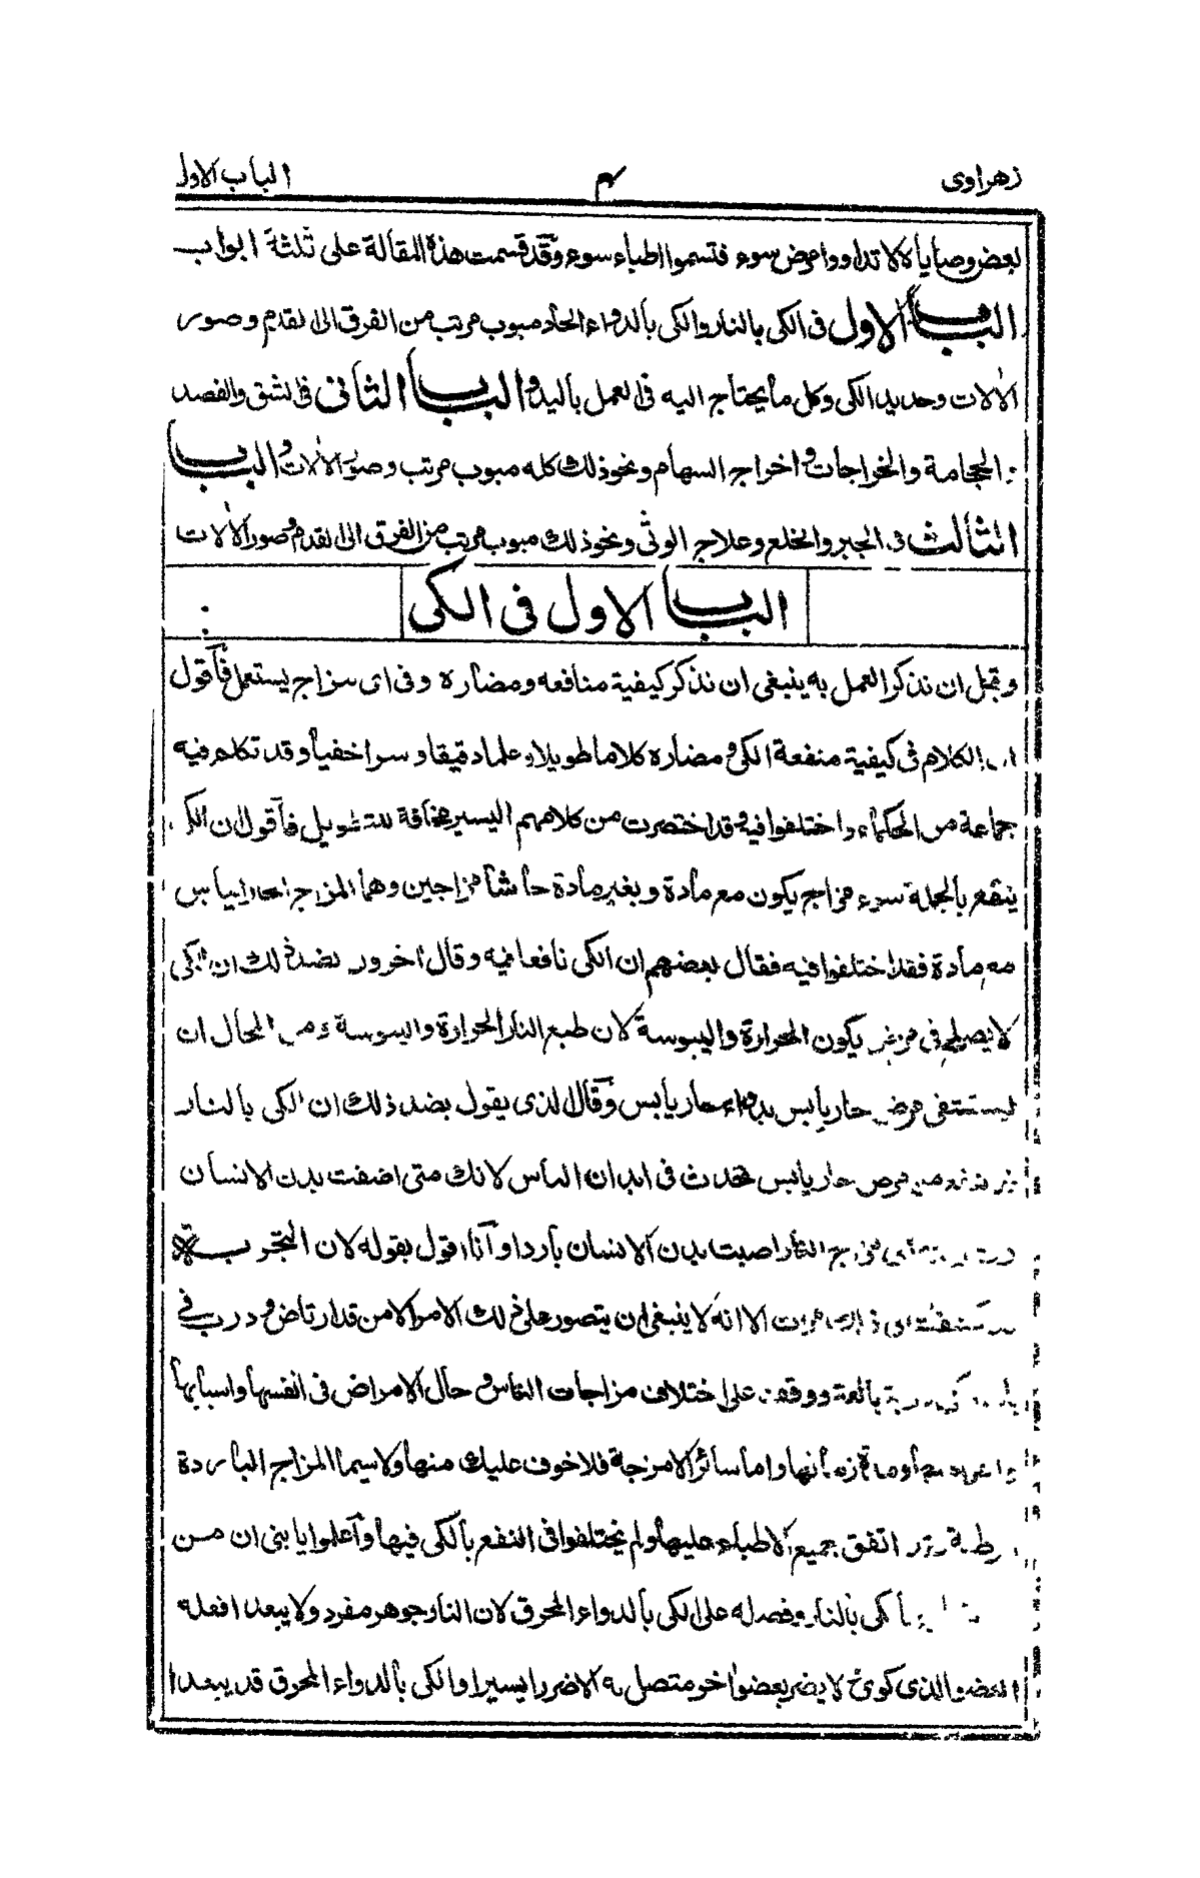 زهراوى
۴
الباب الاول
بعض وصايا لا تداووا مرض سوء فتسموا اطباء سوء وقد قسمت هذه المقالة على ثلثة ابواب
الباب الاول فى الكى بالنار والكى بالدواء الحاد مبوب مرتب من الفرق الى القدم وصور
الالات وحديد الكى وكل ما يحتاج اليه فى العمل باليد والباب الثانى فى الشق والفصد
الحجامة والخراجات واخراج السهام ونحو ذلك كله مبوب مرتب وصور الالات والباب
الثالث فى الجبر والخلع وعلاج الوثى ونحو ذلك مبوب مرتب من الفرق الى القدم وصور الالات
الباب الاول فى الكى
وقبل ان نذكر العمل به ينبغى ان نذكر كيفية منافعه ومضاره وفى اى مزاج يستعمل فاقول
ان الكلام فى كيفية منفعة الكى ومضاره كلاما طويلا وعلما دقيقا وسرا خفيا وقد تكلم فيه
جماعة من الحكماء واختلفوا فيه وقد اختصرت من كلامهم اليسير مخافة للتطويل فاقول ان الكى
ينفع بالجملة سوء مزاج يكون مع مادة وبغير مادة حاشا مزاجين وهما المزاج الحار اليابس
مادة فقد اختلفوا فيه فقال بعضهم ان الكى نافعا فيه وقال اخرون بضد ذلك ان الكى
لا يصلح فى مرض يكون الحرارة واليبوسة لان طبع النار الحرارة واليبوسة ومن المحال ان
يستشفى مرض حار يابس بدواء حار يابس وقال الذى يقول بضد ذلك ان الكى بالنار
مرض حار يابس تحدث فى ابدان الناس لانك متى اضفت بدن الانسان
مزاج النار اصبت بدن الانسان باردا وانا اقول بقوله لان التجربة
مرات الا انه لا ينبغى ان يتصور على ذلك الامر الا من قد ارتاض ودرب فى
بالغة ووقف على اختلاف مزاجات الناس وحال الامراض فى انفسها واسبابها
زمانها واما سائر الامزجة فلا خوف عليك منها ولا سيما المزاج الباردة
اتفق جميع الاطباء عليها ولم يختلفوا فى النفع بالكى فيها واعلموا يا بنى ان من
كى بالنار وفصله على الكى بالدواء المحرق لان النار جوهر مفرد ولا يبعد افعله
العضو الذى كوى لا يضر بعضو اخر متصل به الا ضررا يسيرا والكى بالدواء المحرق قد يبعد ا